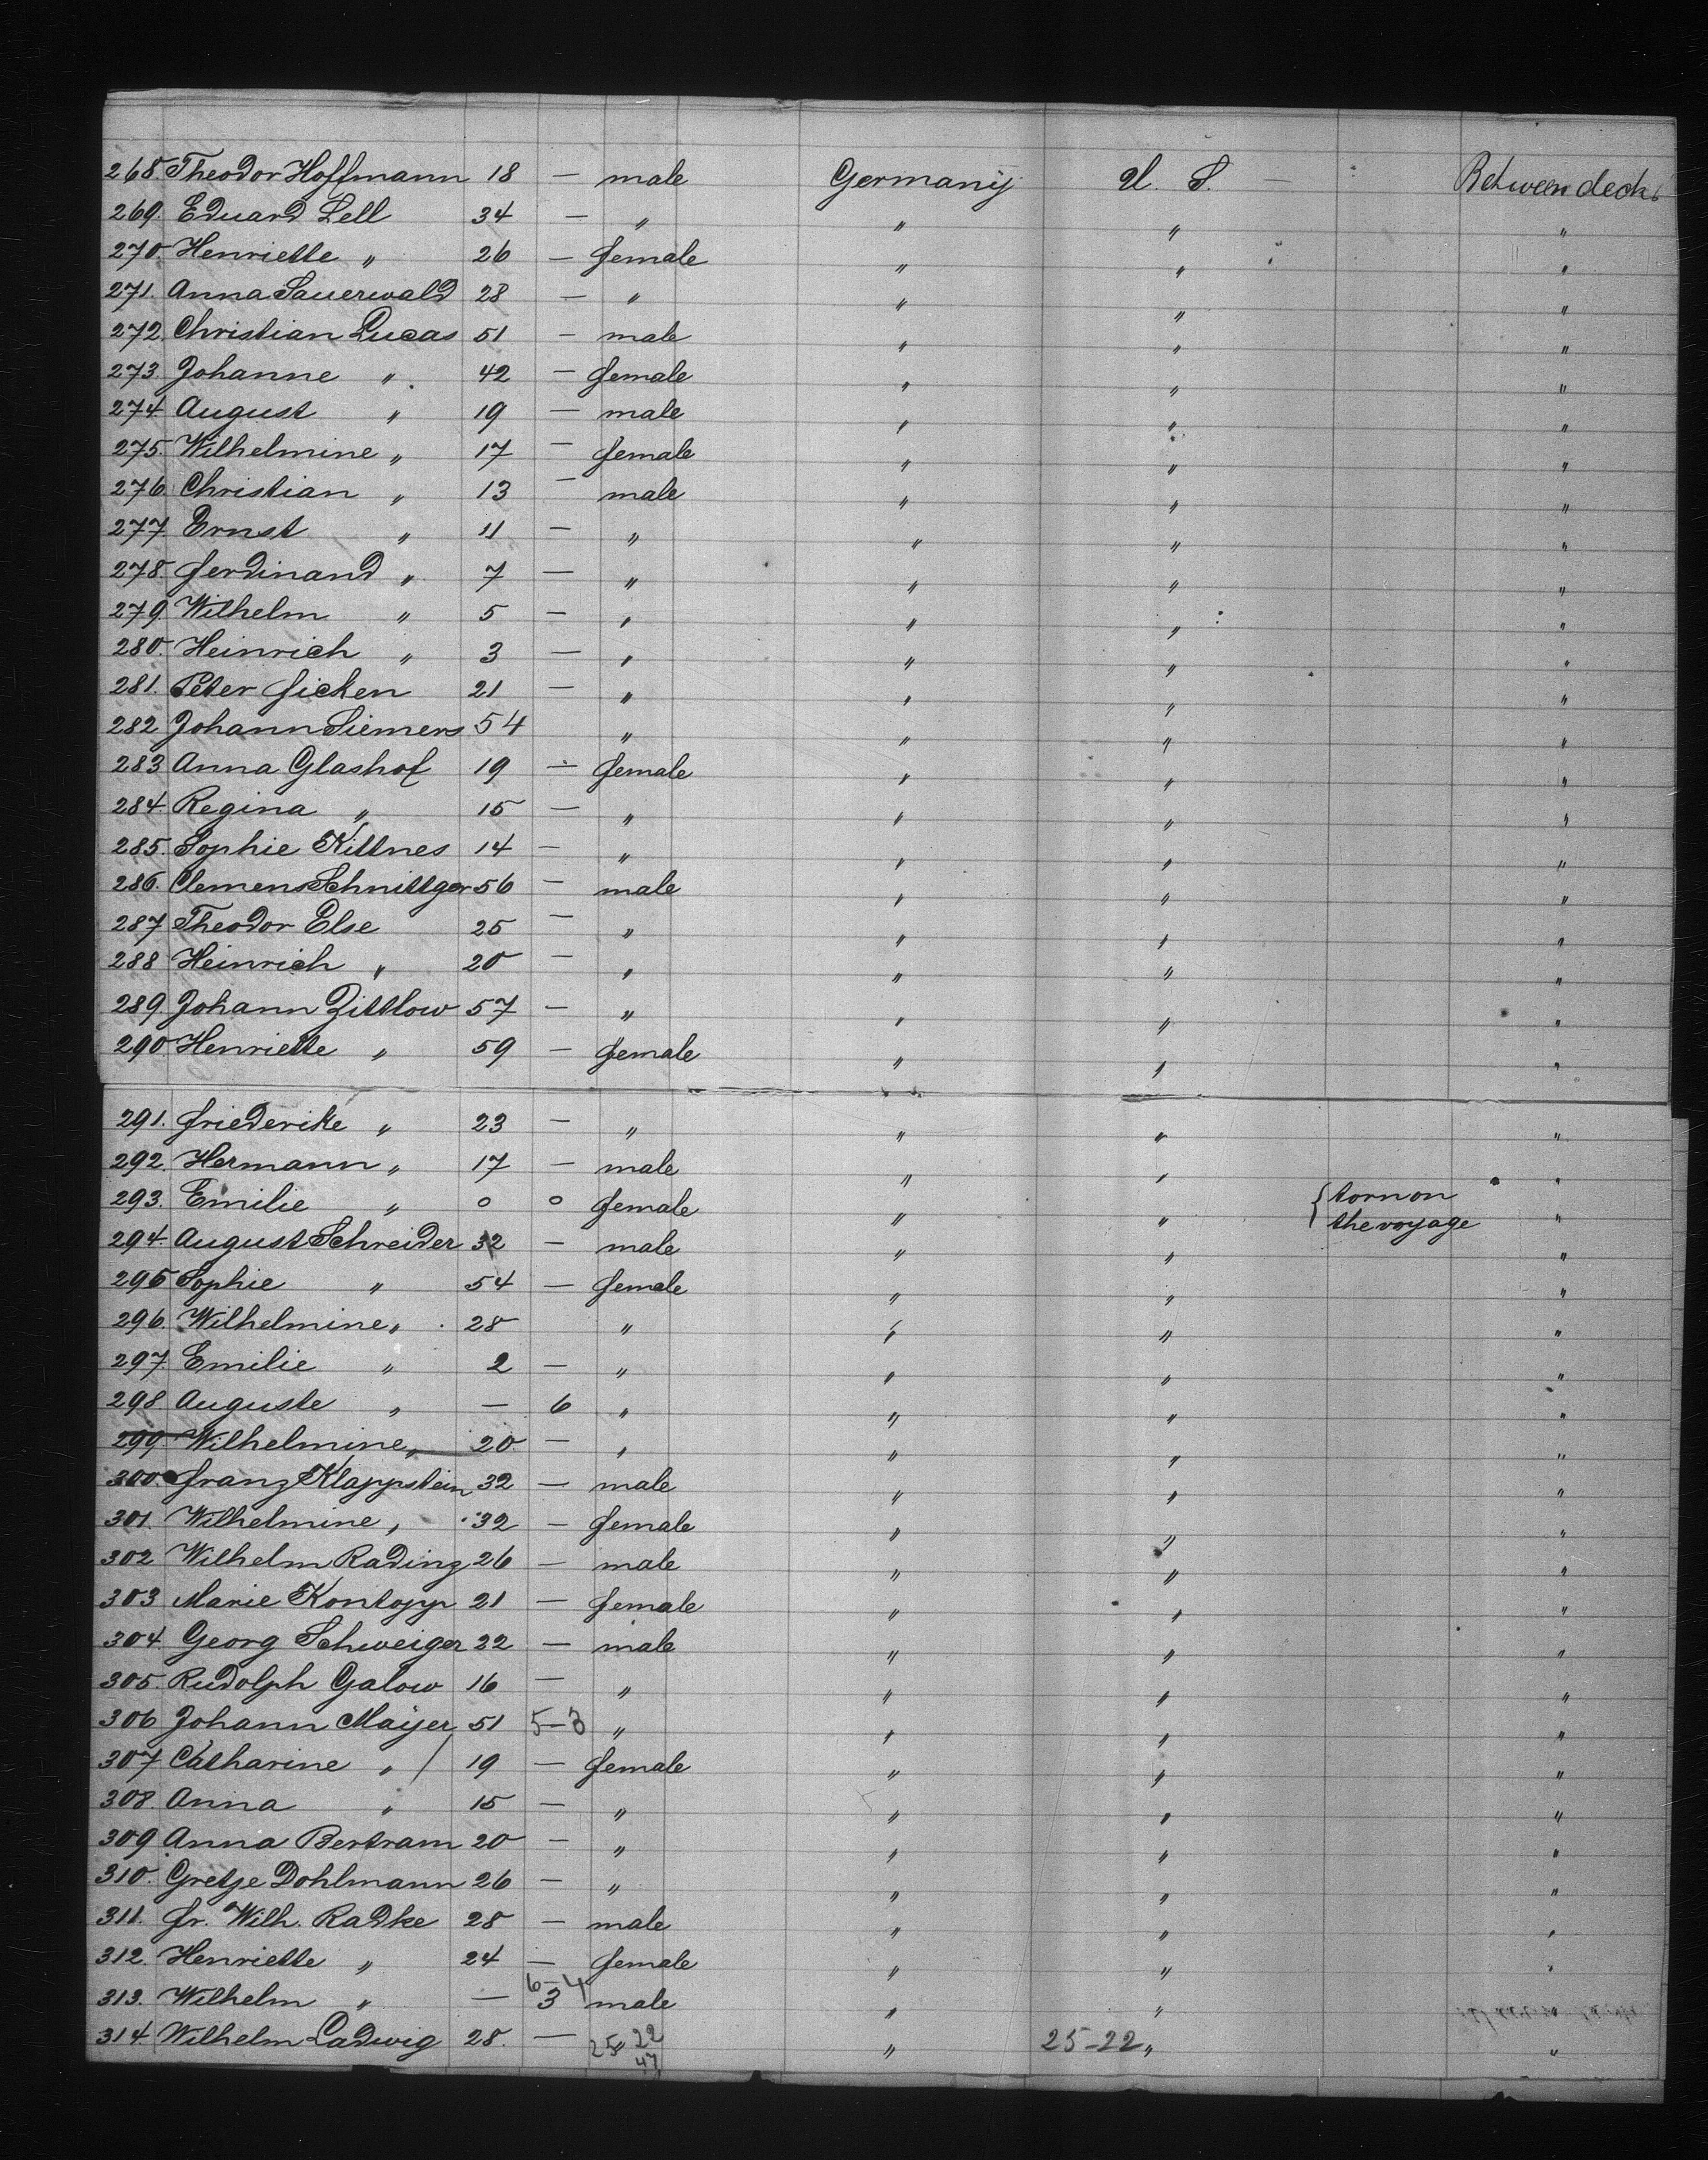 268. Theodor Hoffmann 18 — male Germany U. S. — Between decks
269. Eduard Lell 34 — " " " "
270. Henriette " 26 — female " " "
271. Anna Sauerwald 28 — " " " "
272. Christian Lucas 51 — male " " "
273. Johanne " 42 — female " " "
274. August " 19 — male " " "
275. Wilhelmine " 17 — female " " "
276. Christian " 13 — male " " "
277. Ernst " 11 — " " " "
278. Ferdinand " 7 — " " " "
279. Wilhelm " 5 — " " " "
280. Heinrich " 3 — " " " "
281. Peter Ficken 21 — " " " "
282 Johann Siemers 54 " " " "
283 Anna Glashof 19 — female " " "
284. Regina " 15 — " " " "
285. Sophie Kittnes 14 — " " " "
286. Clemens Schnittger 56 — male " " "
287 Theodor Else 25 — " " " "
288 Heinrich " 20 — " " " "
289. Johann Zittlow 57 — " " " "
290 Henriette " 59 — female " " "
291. Friederike " 23 — " " " "
292. Hermann " 17 — male " " "
293. Emilie " 0 0 female " " { born on the voyage "
294. August Schreider 32 — male " " "
295 Sophie " 54 — female " " "
296. Wilhelmine " 28 " " " "
297. Emilie " 2 — " " " "
298. Auguste " — 6 " " " "
299 Wilhelmine " 20 — " " " "
300. Franz Klappstein 32 — male " " "
301. Wilhelmine " 32 — female " " "
302 Wilhelm Rading 26 — male " " "
303 Marie Kontopp 21 — female " " "
304. Georg Schweiger 22 — male " " "
305. Rudolph Galow 16 — " " " "
306 Johann Maijer 51 5-3 " " " "
307 Catharine " / 19 — female " " "
308. Anna " 15 — " " " "
309 Anna Bertram 20 — " " " "
310. Gretje Dohlmann 26 — " " " "
311. Fr. Wilh. Radke 28 — male " " "
312. Henriette " 24 — female " " "
6-4
313. Wilhelm " — 3 male " " "
314. Wilhelm Ladwig 28. — " 25 22 " 25-22 " "
47